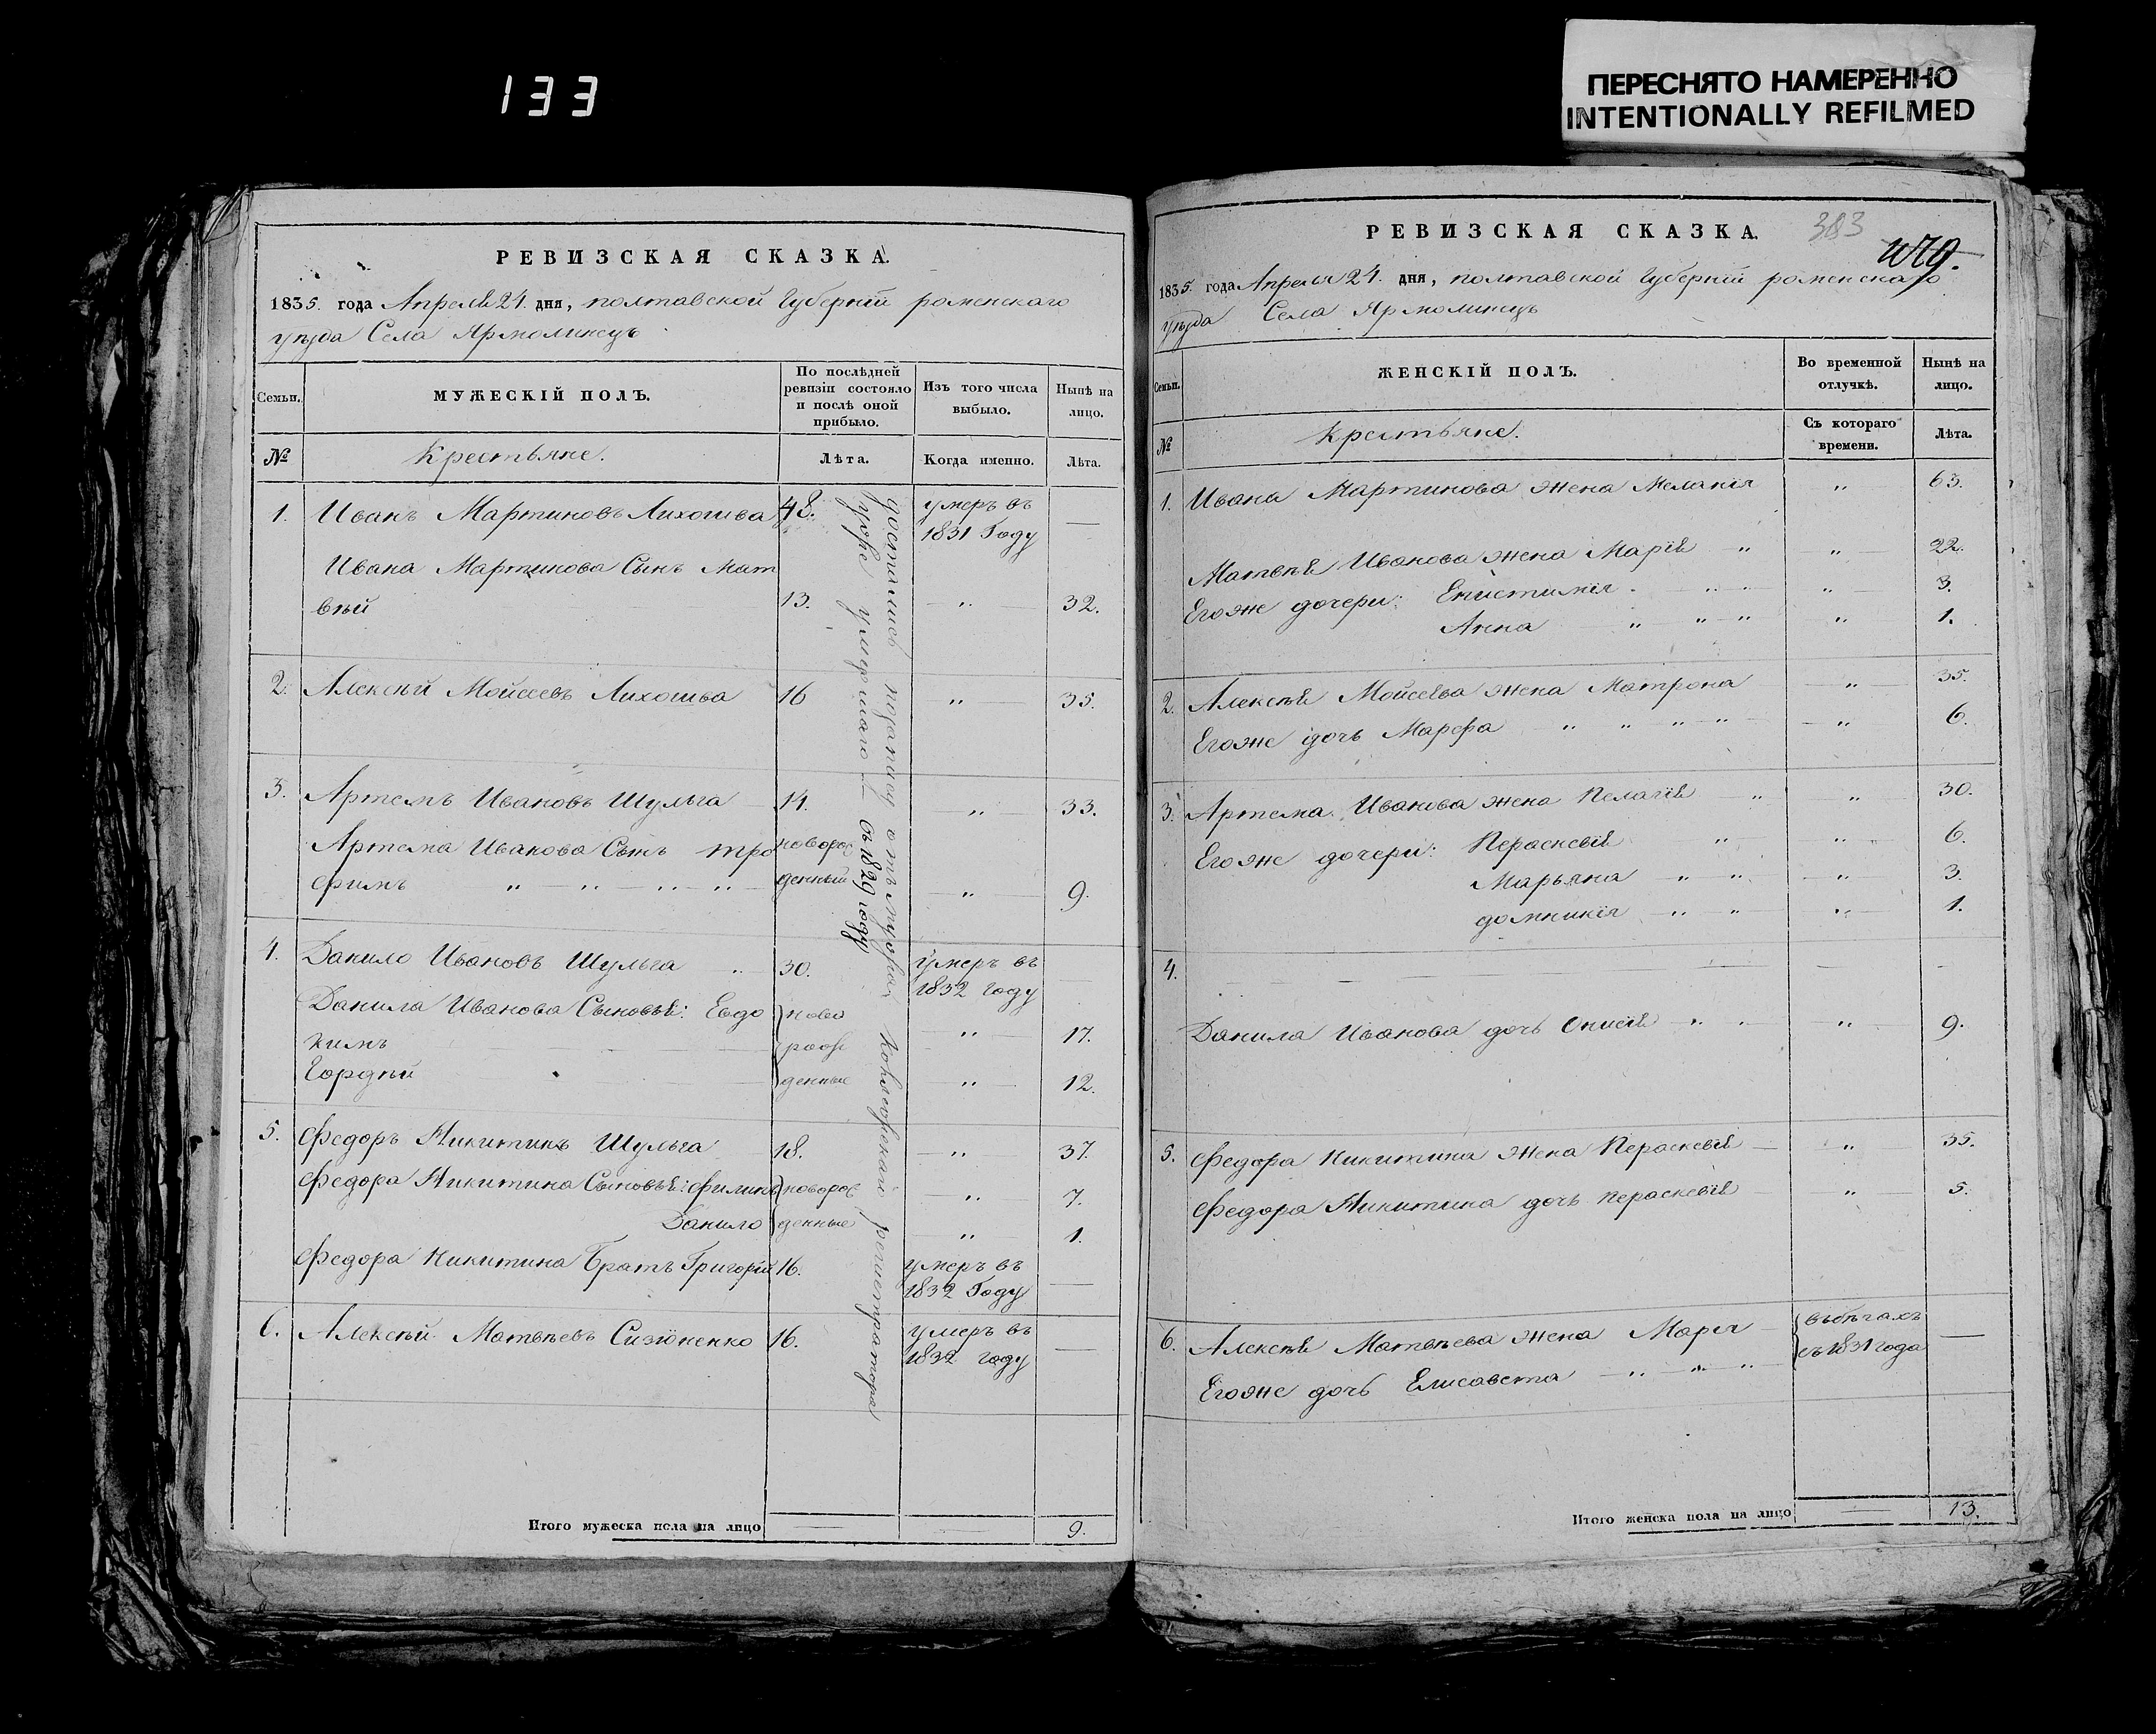 133
ПЕРЕСНЯТО НАМЕРЕННО
INTENTIONALLY REFILMED
РЕВИЗСКАЯ СКАЗКА.
1835. года Апреля 24. дня, полтавской Губернїи роменскаго
уѣзда Села Ярмолинецъ
Семьи.
МУЖЕСКІЙ ПОЛЪ.
По послѣдней
ревизіи состояло
и послѣ оной
прибыло.
Изъ того числа
выбыло.
Нынѣ на
лицо.
№
Крестьяне.
Лѣта.
Когда именно.
Лѣта.
1. Иванъ Мартиновъ Лихошва 48. умеръ въ —
1831 Году
Ивана Мартинова Сынъ Мат
вѣй 13. „ 32.
2. Алексѣй Мойсеевъ Лихошва 16 „ 35.
3. Артемъ Ивановъ Шульга 14. „ 33.
Артема Иванова Сынъ тро новорож
фимъ „ „ „ „ денный „ 9.
4. Данило Ивановъ Шульга „ 30. умеръ въ —
1832 году
Данила Иванова Сыновья: Евдо ново
кимъ рож „ 17.
Гордѣй денные „ 12.
5. Федоръ Никитинъ Шульга 18. „ 37.
Федора Никитина Сыновья: Филипъ новорож „ 7.
Данило денные „ 1.
Федора Никитина Братъ Григорїй 16. умеръ въ —
1832 Году
6. Алексѣй Матвѣевъ Сизіоненко 16. умеръ въ —
1832 году
достались по
уже умершаго въ 1829 году
регистратора
Итого мужеска пола на лицо — — 9.
РЕВИЗСКАЯ СКАЗКА.
383
479.
1835. года Апреля 24. дня, полтавской Губернїи роменскаго
уѣзда Села Ярмолинецъ
Семьи.
ЖЕНСКІЙ ПОЛЪ.
Во временной
отлучкѣ.
Нынѣ на
лицо.
№
Крестьяне.
Съ котораго
времени.
Лѣта.
1. Ивана Мартинова жена Меланїя „ 63.
Матвѣя Иванова жена Марїя „ „ 22.
Егоже дочери: Епистимїя „ „ „ 3.
Анна „ „ „ „ 1.
2. Алексѣя Мойсеева жена Матрона „ 35.
Егоже дочь Марфа „ „ „ „ „ 6.
3. Артема Иванова жена Пелагїя „ „ 30.
Егоже дочери: Пераскевїя „ „ 6.
Марьяна „ „ „ 3.
домникїя „ „ „ 1.
4. — — —
Данила Иванова дочь Онисїя „ „ „ 9.
5. Федора Никитина жена Пераскевїя — „ 35.
Федора Никитина дочь Пераскевїя „ 5.
6. Алексѣя Матвѣева жена Марїя вбѣгахъ
съ 1831 года —
Егоже дочь Елисавета „ „ „
Итого женска пола на лицо — 13.